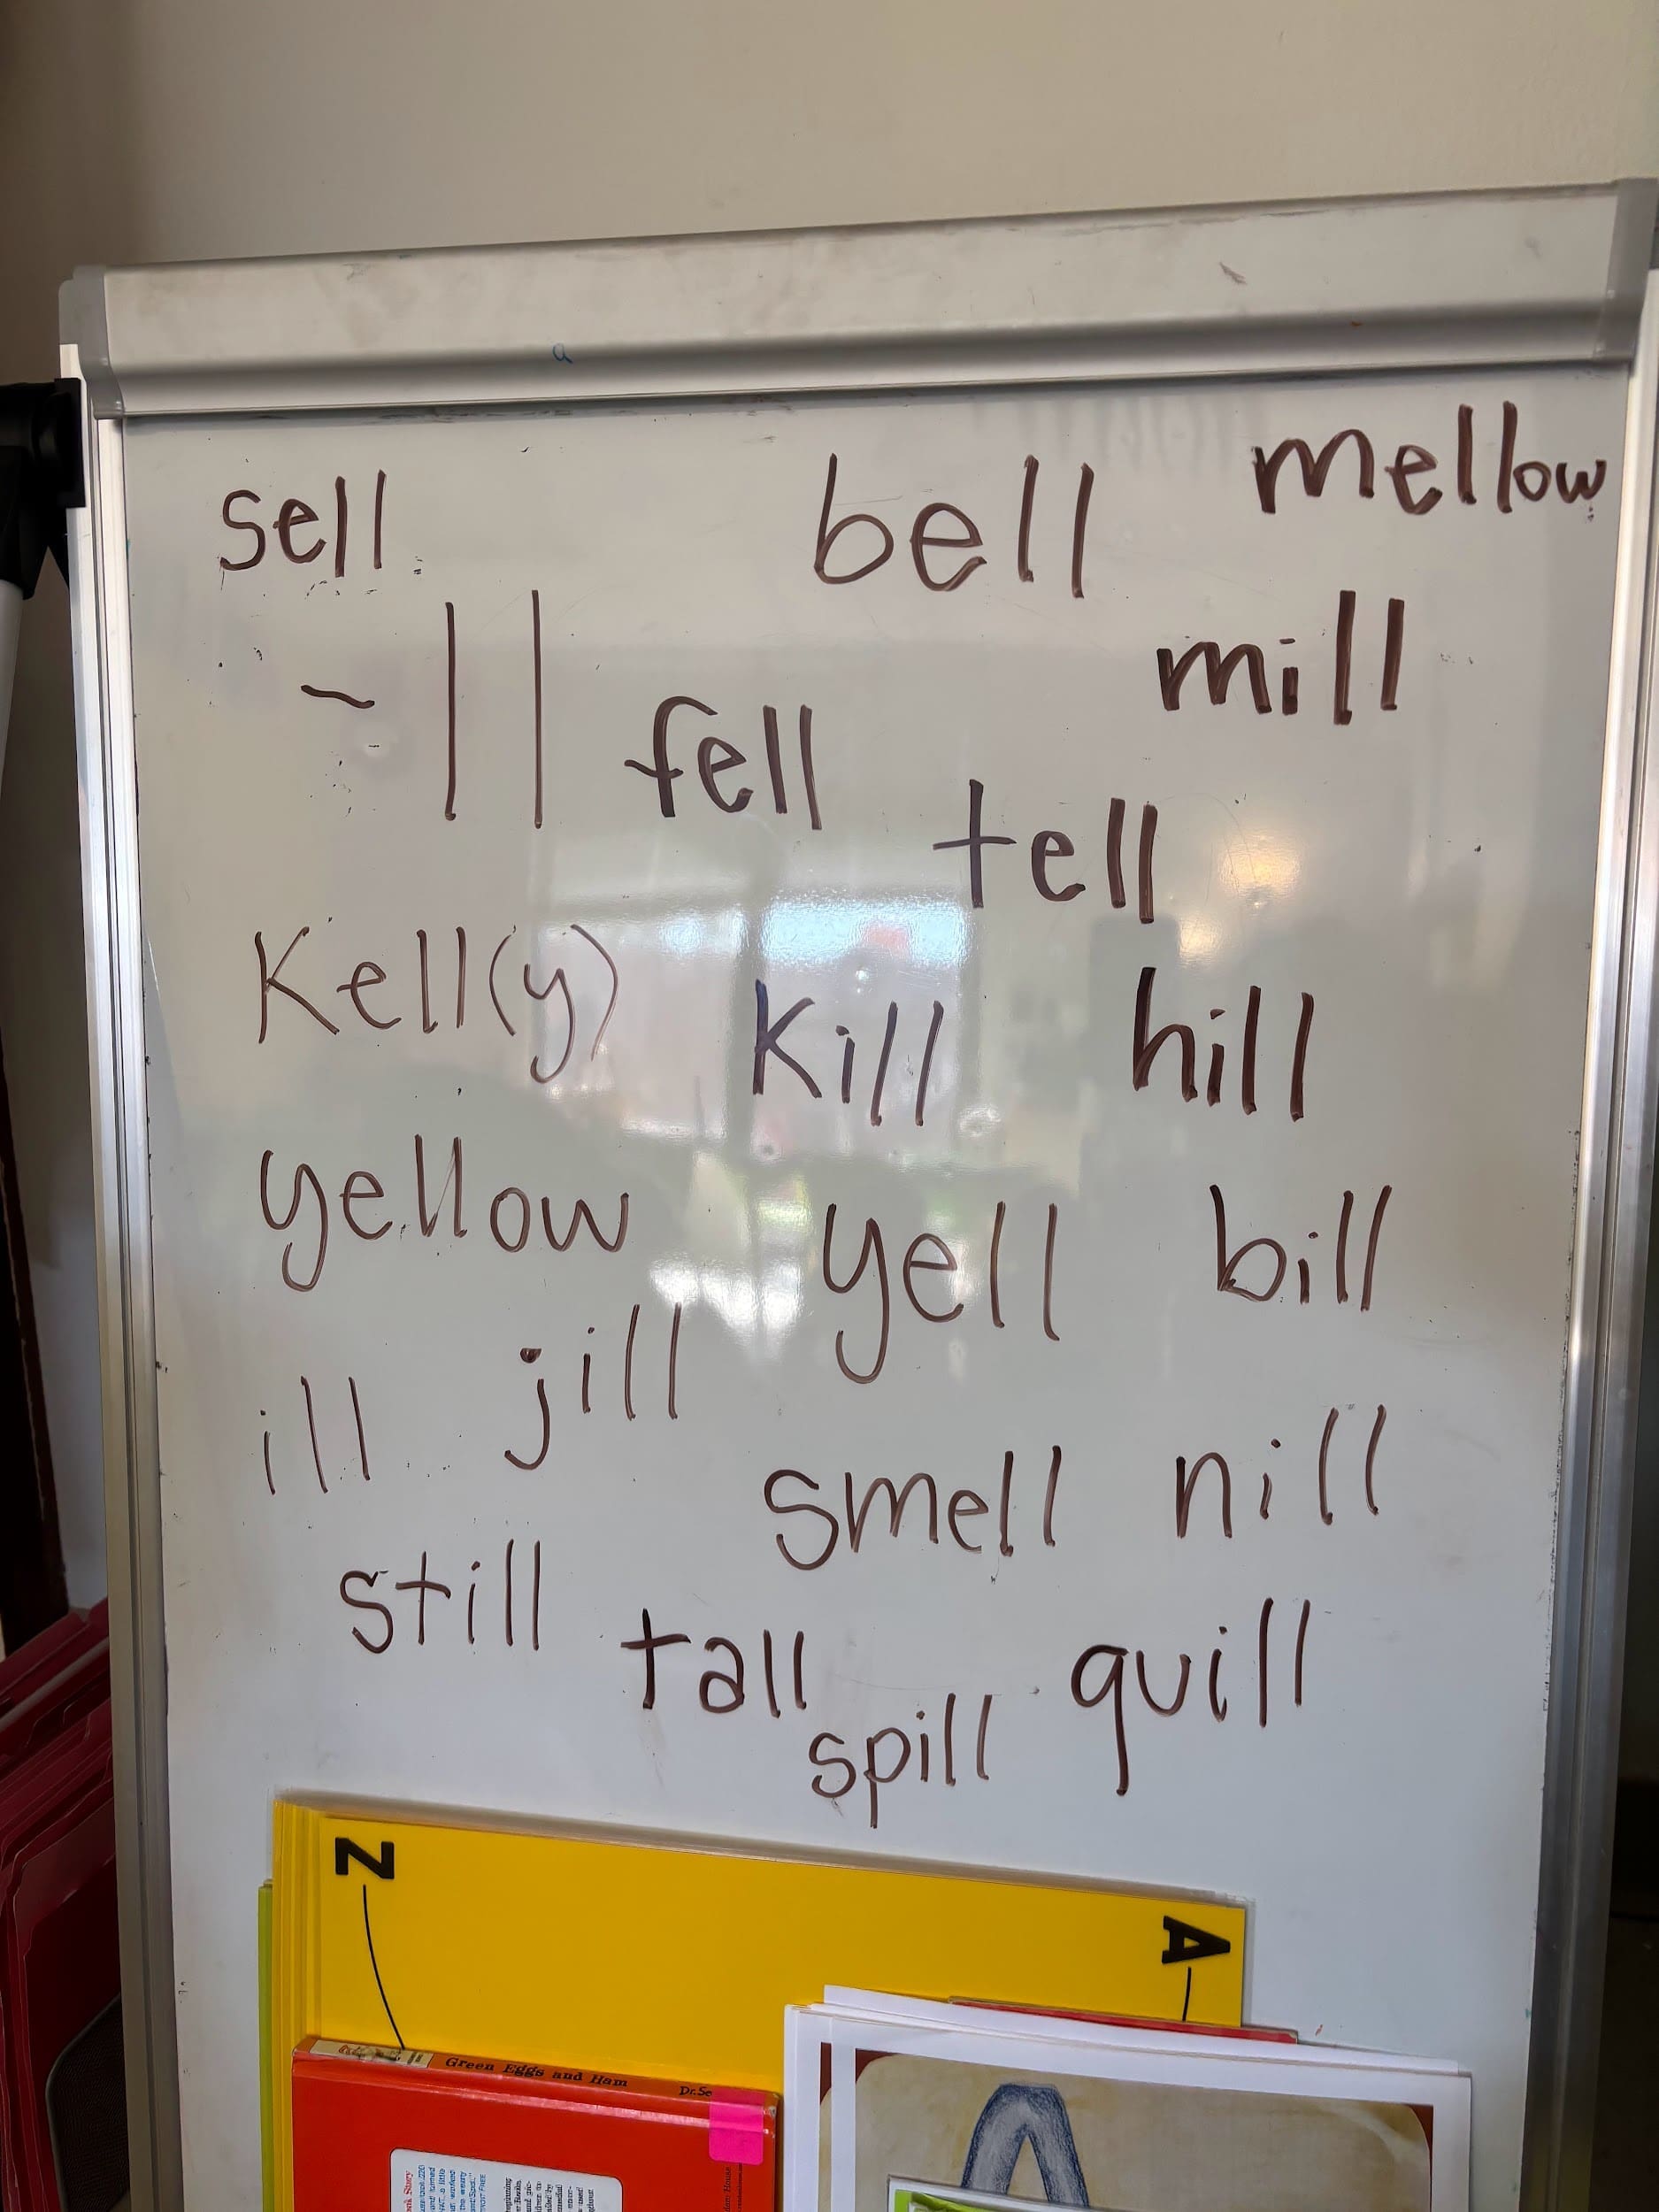 sell bell mellow
-ll fell mill
tell
Kell(y) Kill hill
yellow yell bill
ill jill
smell nill
still tall quill
spill
Z A
Green Eggs and Ham Dr.Se